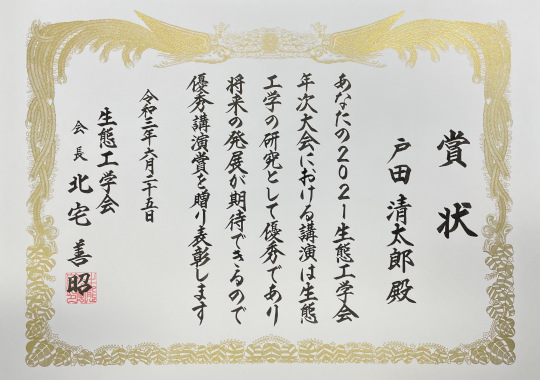 賞状
戸田清太郎殿
あなたの2021生態工学会
年次大会における講演は生態
工学の研究として優秀であり
将来の発展が期待できるので
優秀講演賞を贈り表彰します
令和三年六月二十五日
生態工学会
会長 北宅善昭